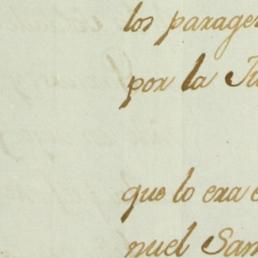 los parages
por la
que lo exa
nuel San